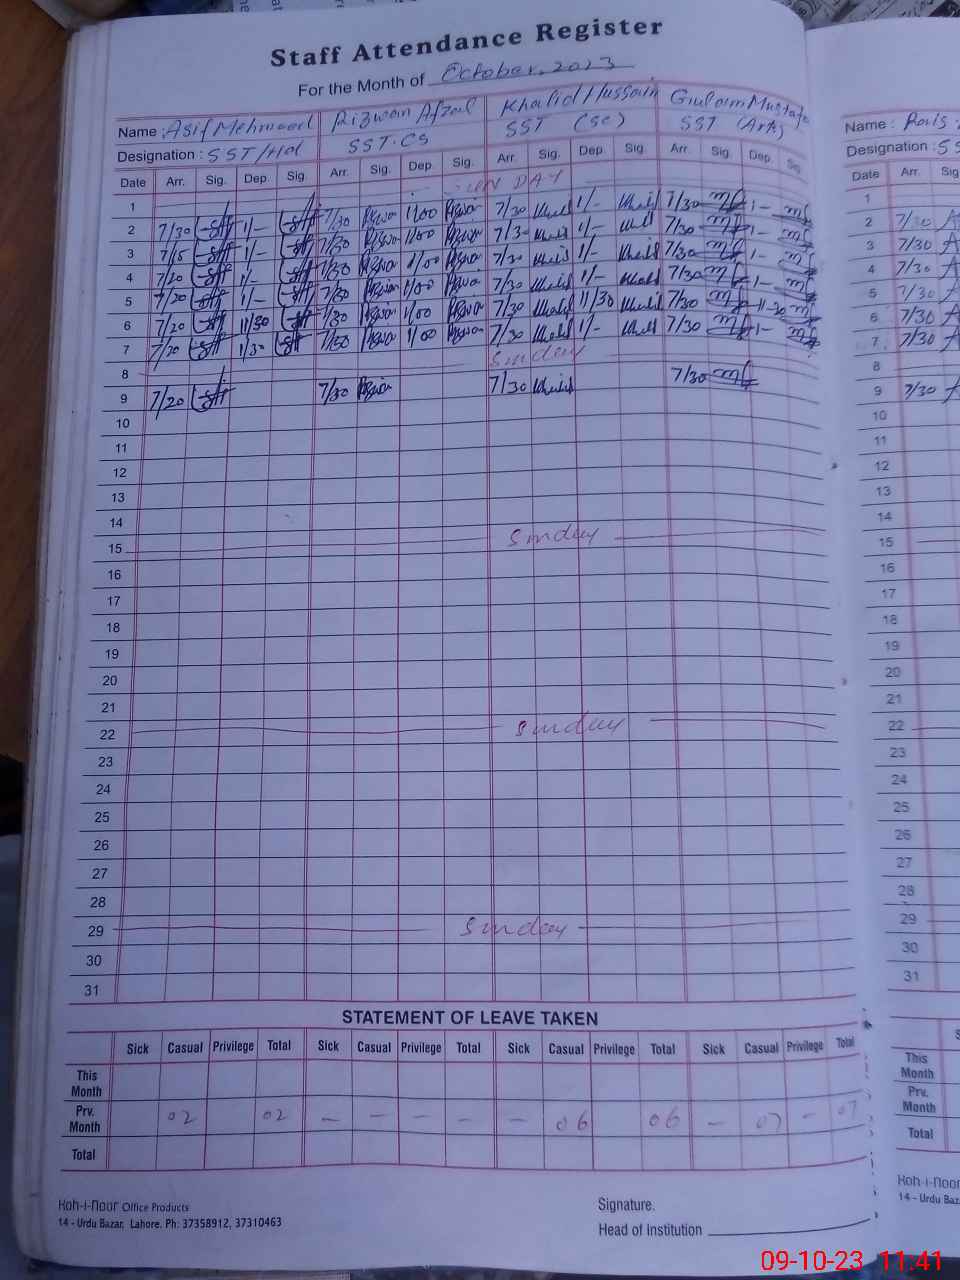 Staff Attendance Register
For the Month of October, 2023
Name : Asif Mehmood Rizwan Afzal Khalid Hussain Ghulam Mustafa Name :
Designation : SST/Hd SST.CS SST (Sc) SST (Arts) Designation : SS
Date Arr. Sig. Dep. Sig. Arr. Sig. Dep. Sig. Arr. Sig. Dep. Sig. Arr. Sig. Dep. Sig. Date Arr. Sig
1 SUNDAY 1
2 7/30 1/- 7/30 1/00 7/30 Khalid 1/- Khalid 7/30 1- 2 7/30
3 7/15 1/- 7/30 1/00 7/30 Khalid 1/- Khalid 7/30 1- 3 7/30
4 7/20 1/- 7/30 1/00 7/30 Khalid 1/- Khalid 7/30 1- 4 7/30
5 7/20 1/- 7/30 1/00 7/30 Khalid 1/- Khalid 7/30 1- 5 7/30
6 7/20 11/30 7/30 1/00 7/30 Khalid 11/30 Khalid 7/30 11-30 6 7/30
7 7/20 1/30 7/30 1/00 7/30 Khalid 1/- Khalid 7/30 1- 7 7/30
8 Sunday 8
9 7/20 7/30 7/30 Khalid 7/30 9 7/30
10 10
11 11
12 12
13 13
14 14
15 Sunday 15
16 16
17 17
18 18
19 19
20 20
21 21
22 Sunday 22
23 23
24 24
25 25
26 26
27 27
28 28
29 Sunday 29
30 30
31 31
STATEMENT OF LEAVE TAKEN
Sick Casual Privilege Total Sick Casual Privilege Total Sick Casual Privilege Total Sick Casual Privilege Total S
This Month This Month
Prv. Month 02 02 - - - - - 06 06 - 07 - 07 Prv. Month
Total Total
Koh-i-Noor Office Products Koh-i-Noor
14 - Urdu Bazar, Lahore. Ph: 37358912, 37310463 14 - Urdu Baza
Signature.
Head of Institution
09-10-23 11:41